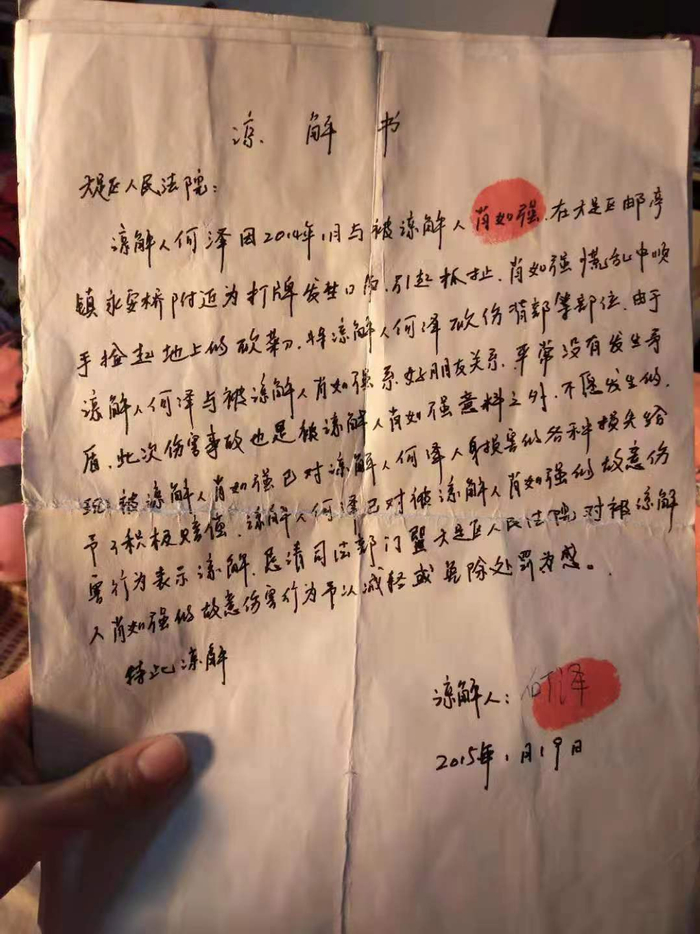 谅解书
大足区人民法院:
谅解人何泽因2014年1月与被谅解人肖如强.在大足区邮亭
镇永安桥附近为打牌发生口角,引起抓扯.肖如强慌乱中顺
手捡起地上的砍菜刀.将谅解人何泽砍伤背部等部位.由于
谅解人何泽与被谅解人肖如强系好朋友关系.平常没有发生矛
盾.此次伤害事故也是被谅解人肖如强意料之外.不愿发生的.
现被谅解人肖如强已对谅解人何泽人身损害的各种损失给
予了积极赔偿.谅解人何泽已对被谅解人肖如强的故意伤
害行为表示谅解.恳请司法部门暨大足区人民法院对被谅解
人肖如强的故意伤害行为予以减轻或免除处罚为感。
特此谅解
谅解人:何泽
2015年1月19日